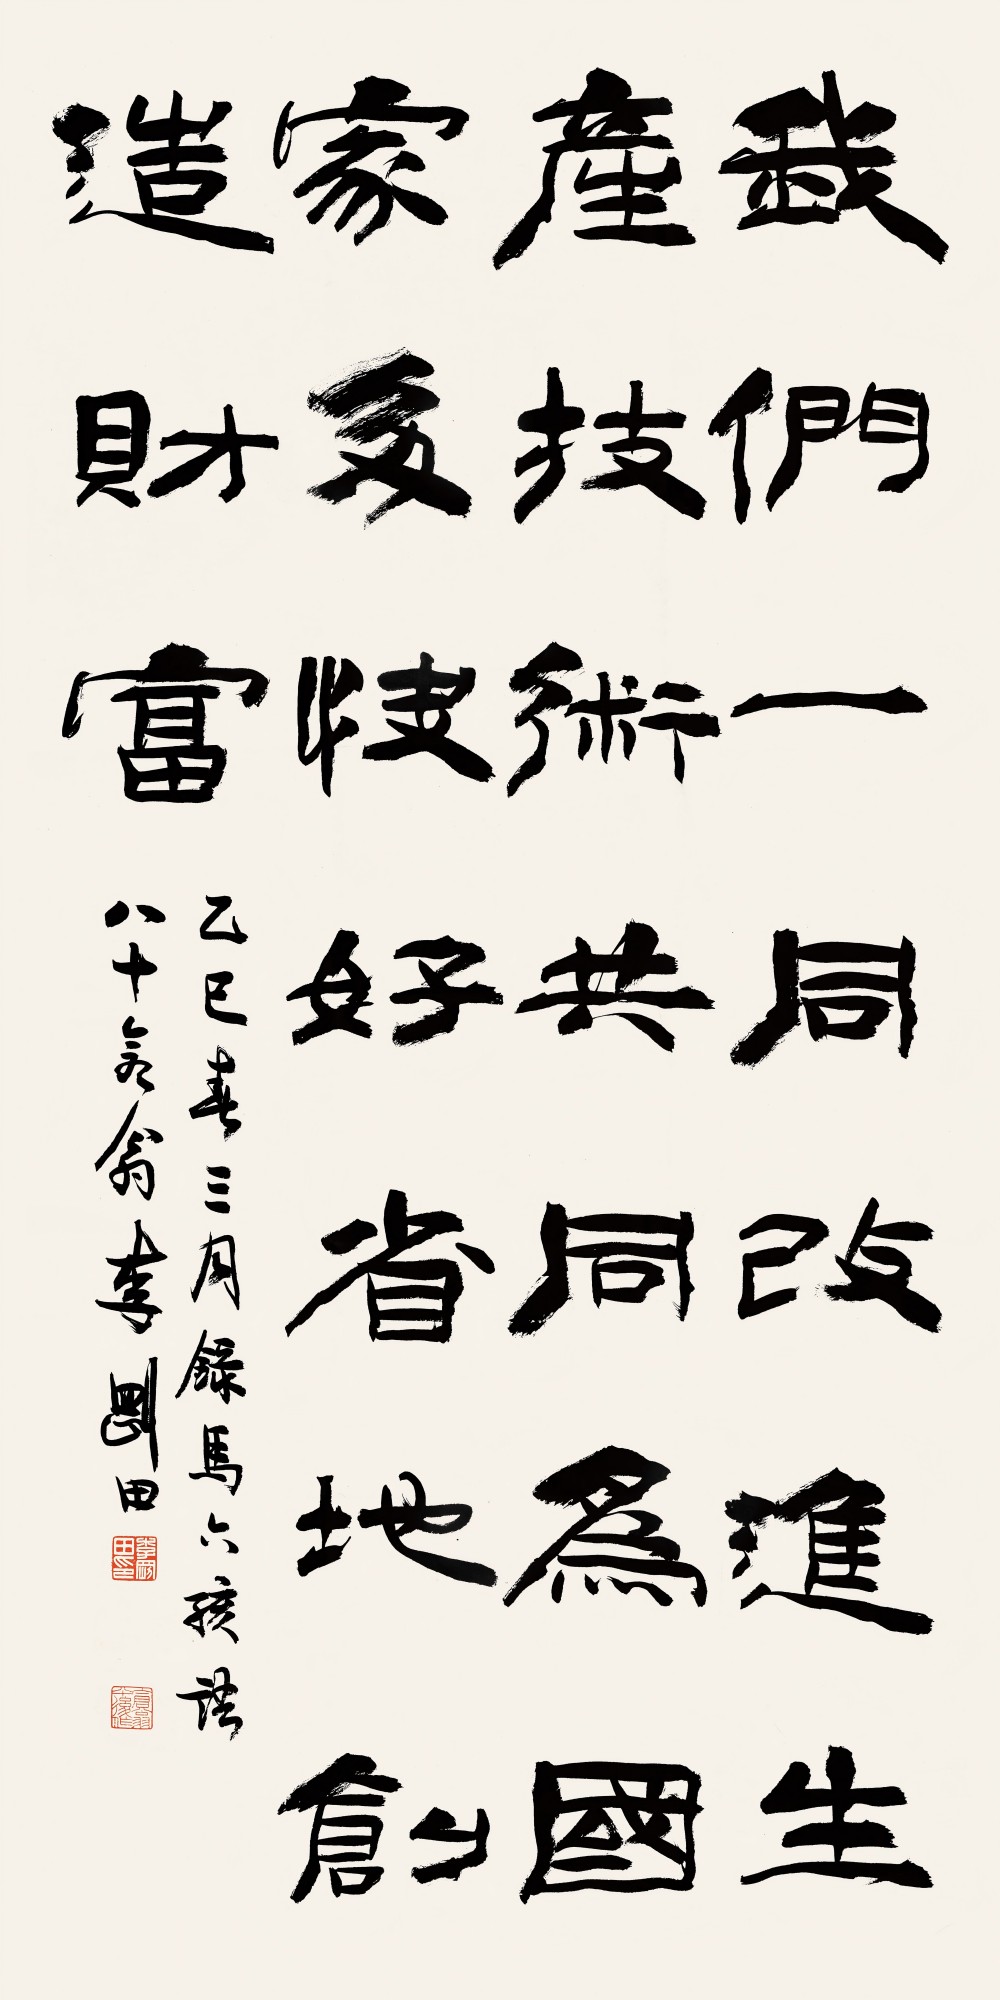 我們一同改進生
產技術共同為國
家多快好省地創
造財富
乙巳春三月錄馬六孩語
八十翁李剛田
李剛田印